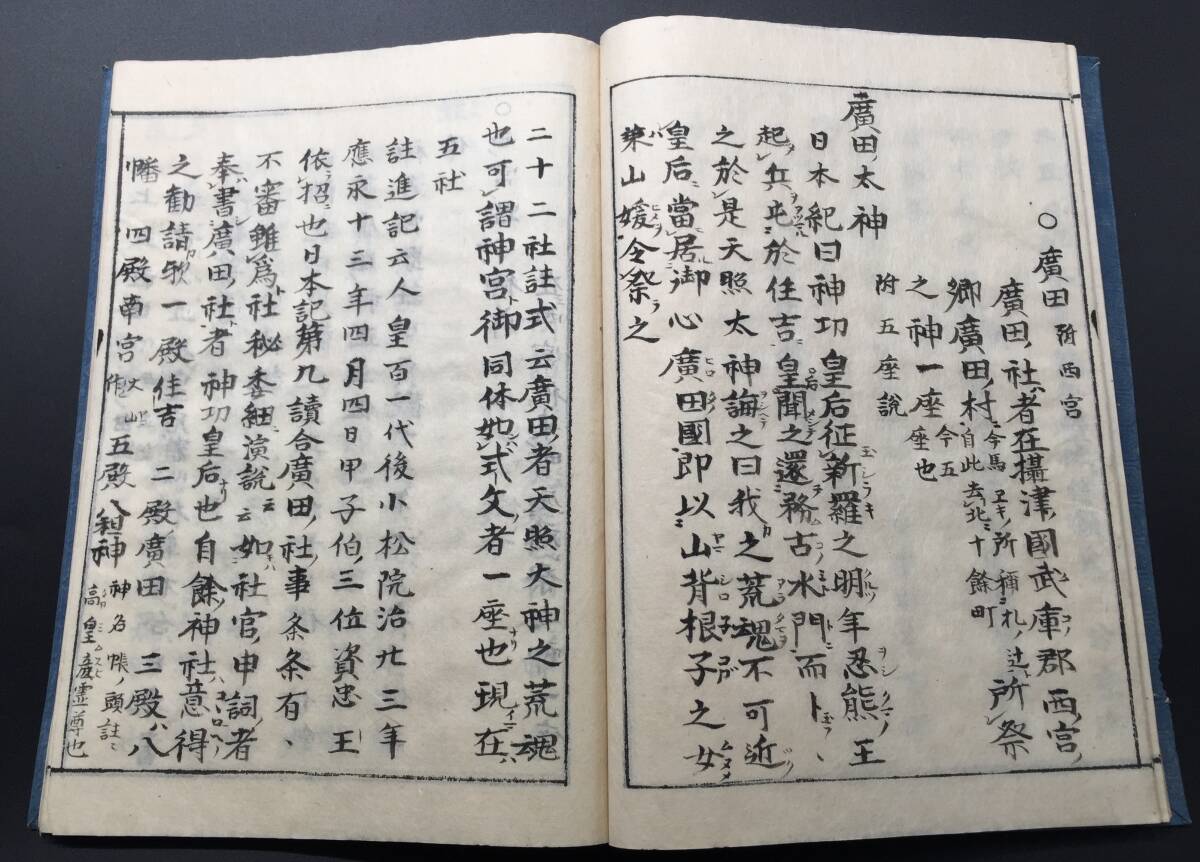 ○廣田附西宮
廣田ノ社ハ者在攝津ノ國武庫郡西ノ宮ノ
郷廣田ノ村ニ今馬ヱキノ所稱ニ札ノ辻ト自此去北ニ十餘町所祭
之神一座今五座也
附五座説
廣田ノ太神
日本紀曰神功皇后征新羅之明年忍熊ノ王
起兵屯於住吉皇后聞之還務古水門而卜
之於是天照太神誨之曰我之荒魂不可近
皇后當居御心廣田國即以山背根子之女
葉山媛令祭之
二十二社註式云廣田ノ者天照大神之荒魂
○也可謂神宮ト御同体如式文ノ者一座也現在
五社
註進記云人皇百一代後小松院治廿三年
應永十三年四月四日甲子伯ノ三位資忠王
依招也日本記第九讀合廣田ノ社ノ事条条有
不審雖爲社ノ秘委細演説云云如社官ノ申詞ノ者
奉書廣田ノ社ト者神功皇后也自餘神社ノ意得
之勸請歟一殿住吉二殿廣田三殿八
幡四殿南宮五殿八祖神神名帳ノ頭註ニ高皇産霊尊也